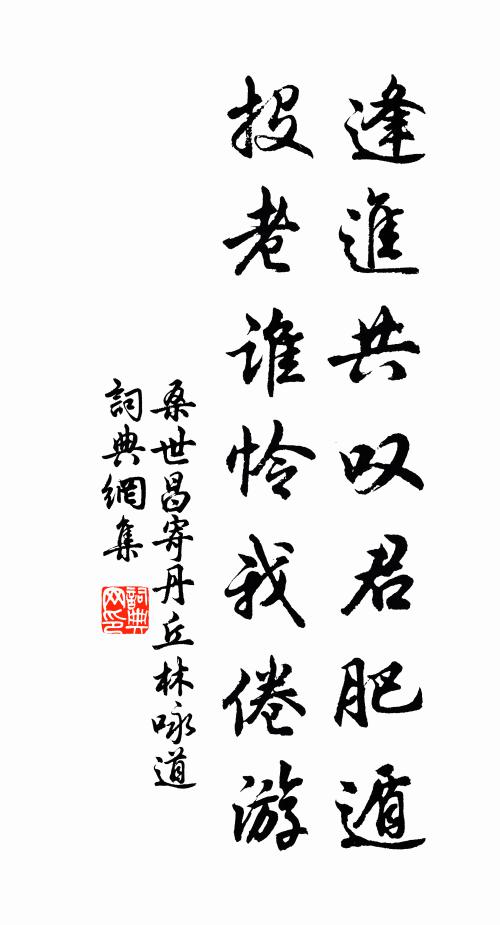 逢進共叹君肥遁
投老谁怜我倦游
桑世昌寄丹丘林咏道
詞典網集
詞典网印